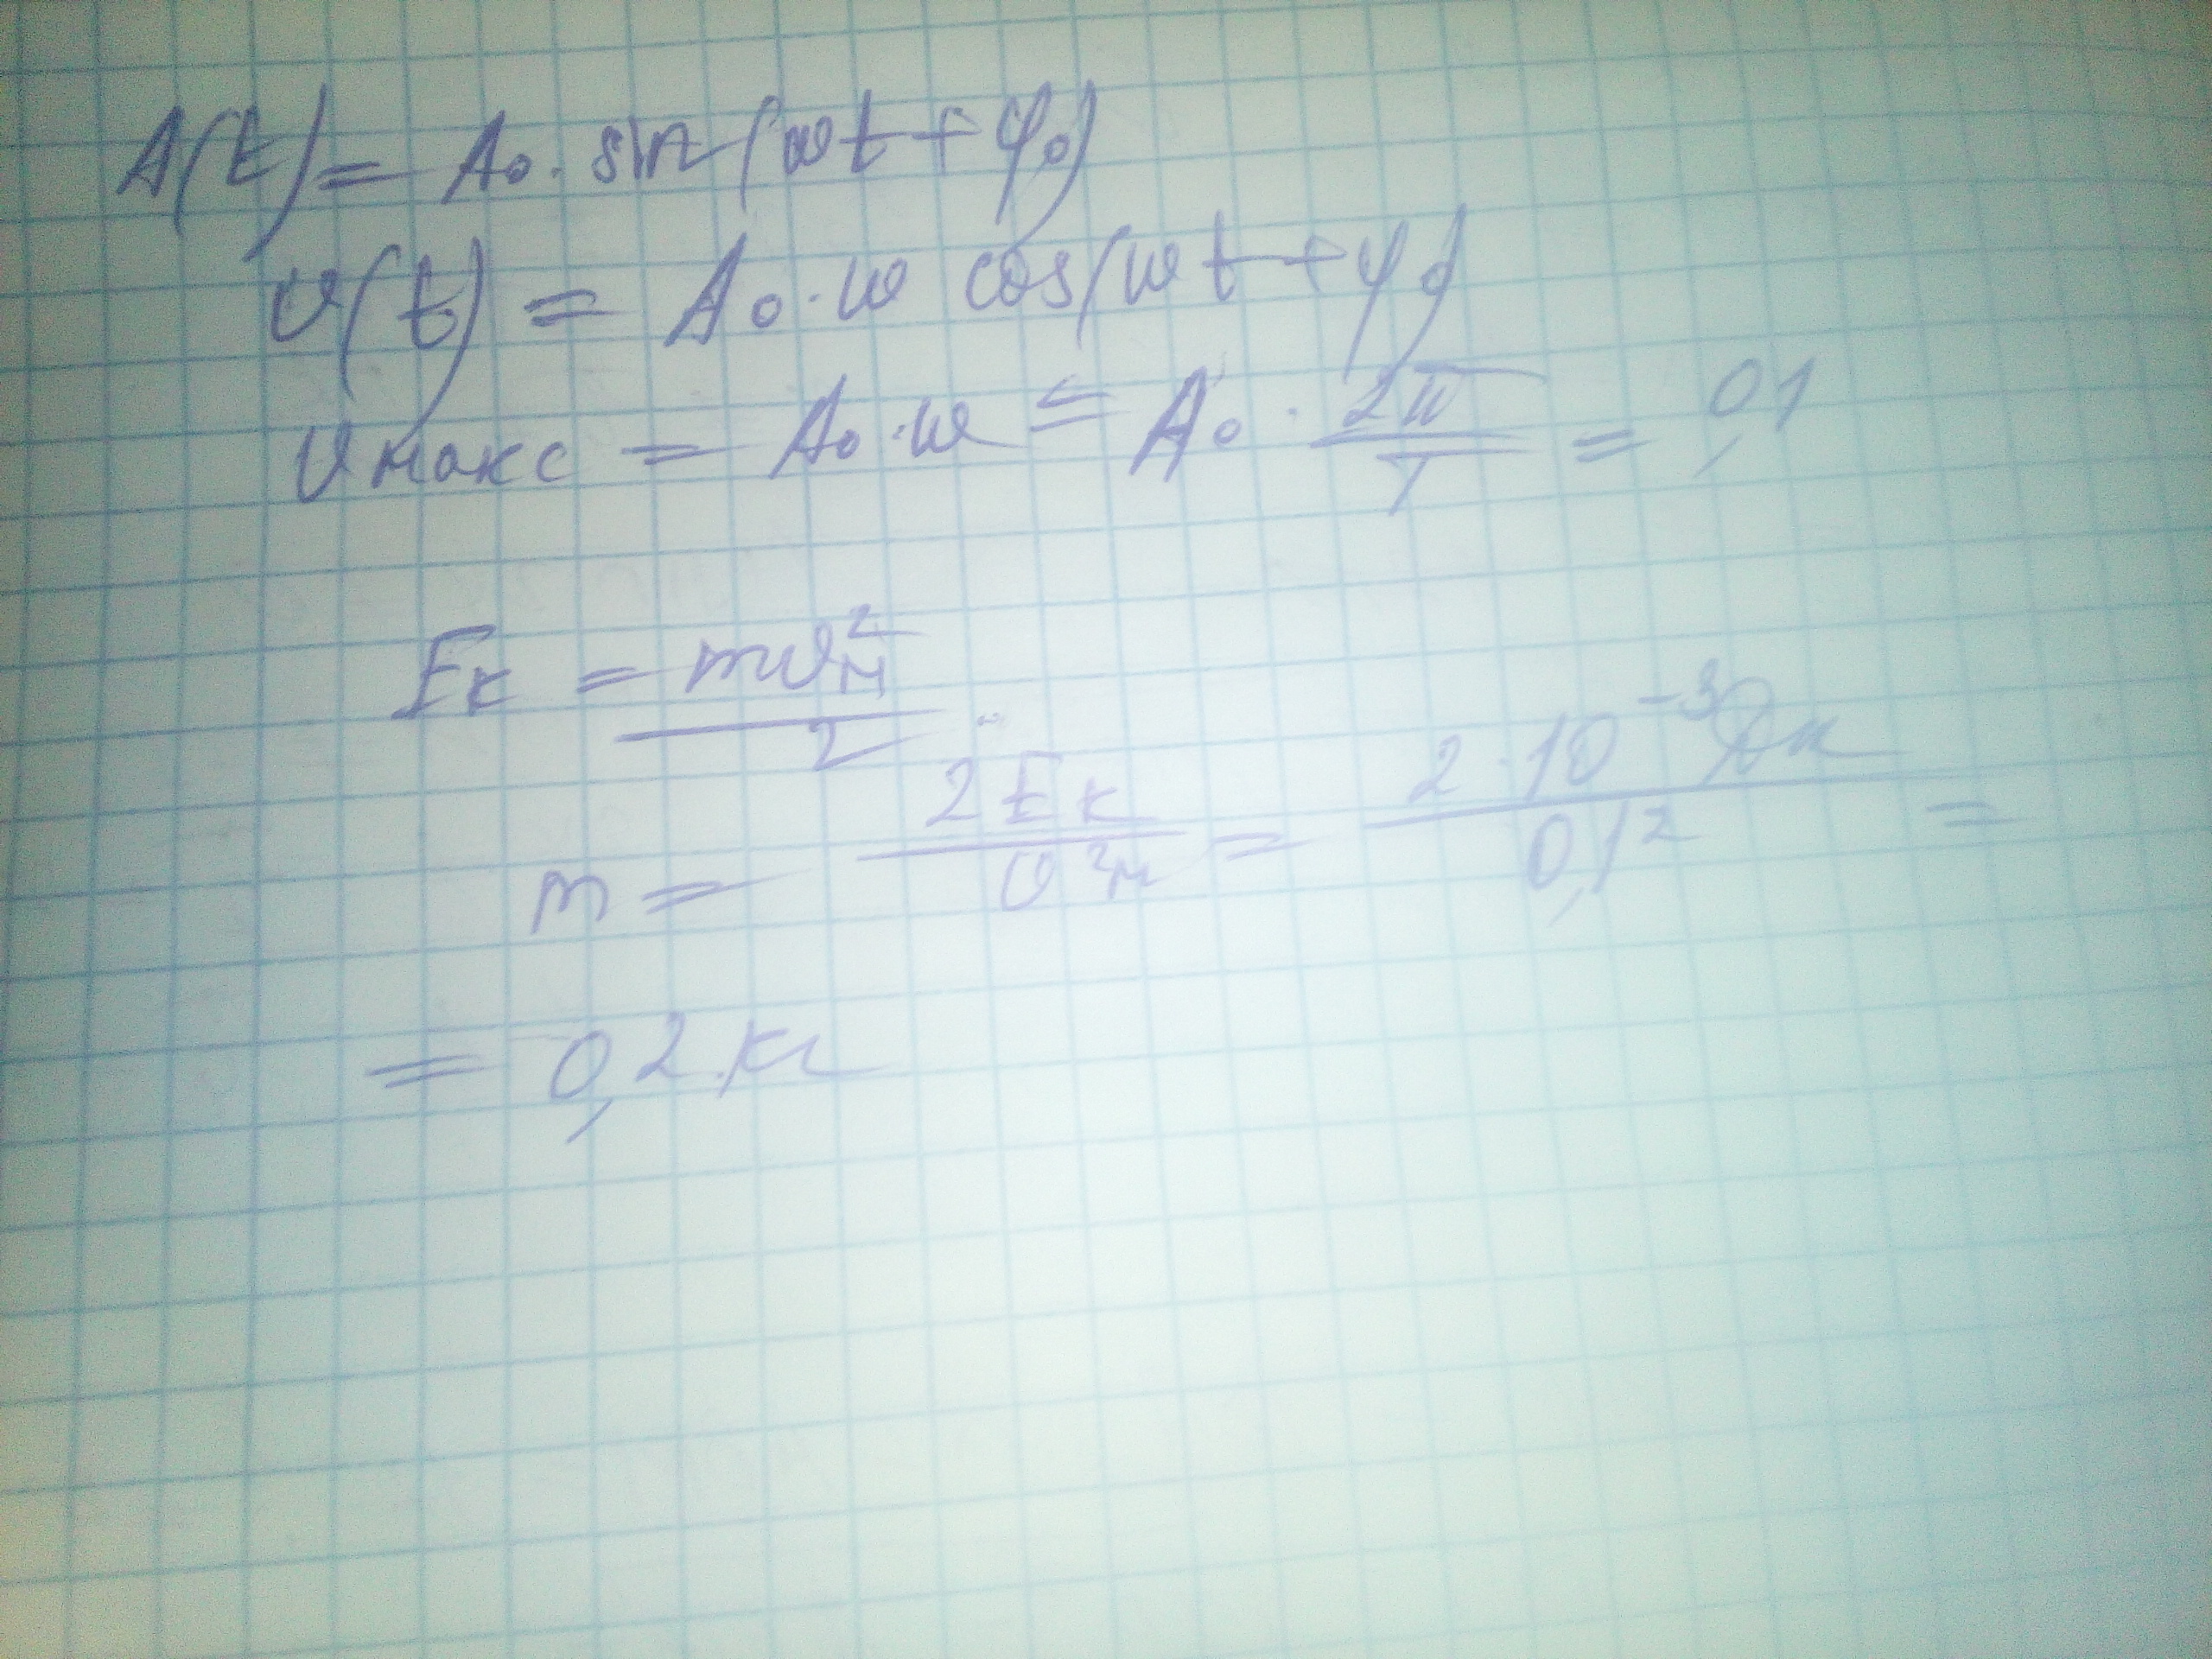 A(t) = A₀ · sin(ωt + φ₀)
v(t) = A₀ · ω cos(ωt + φ₀)
vмакс = A₀ · ω = A₀ · 2π/T = 0,1
Eк = mvм²/2
m = 2Eк/v²м = 2·10⁻³Дж/0,1² =
= 0,2 кг